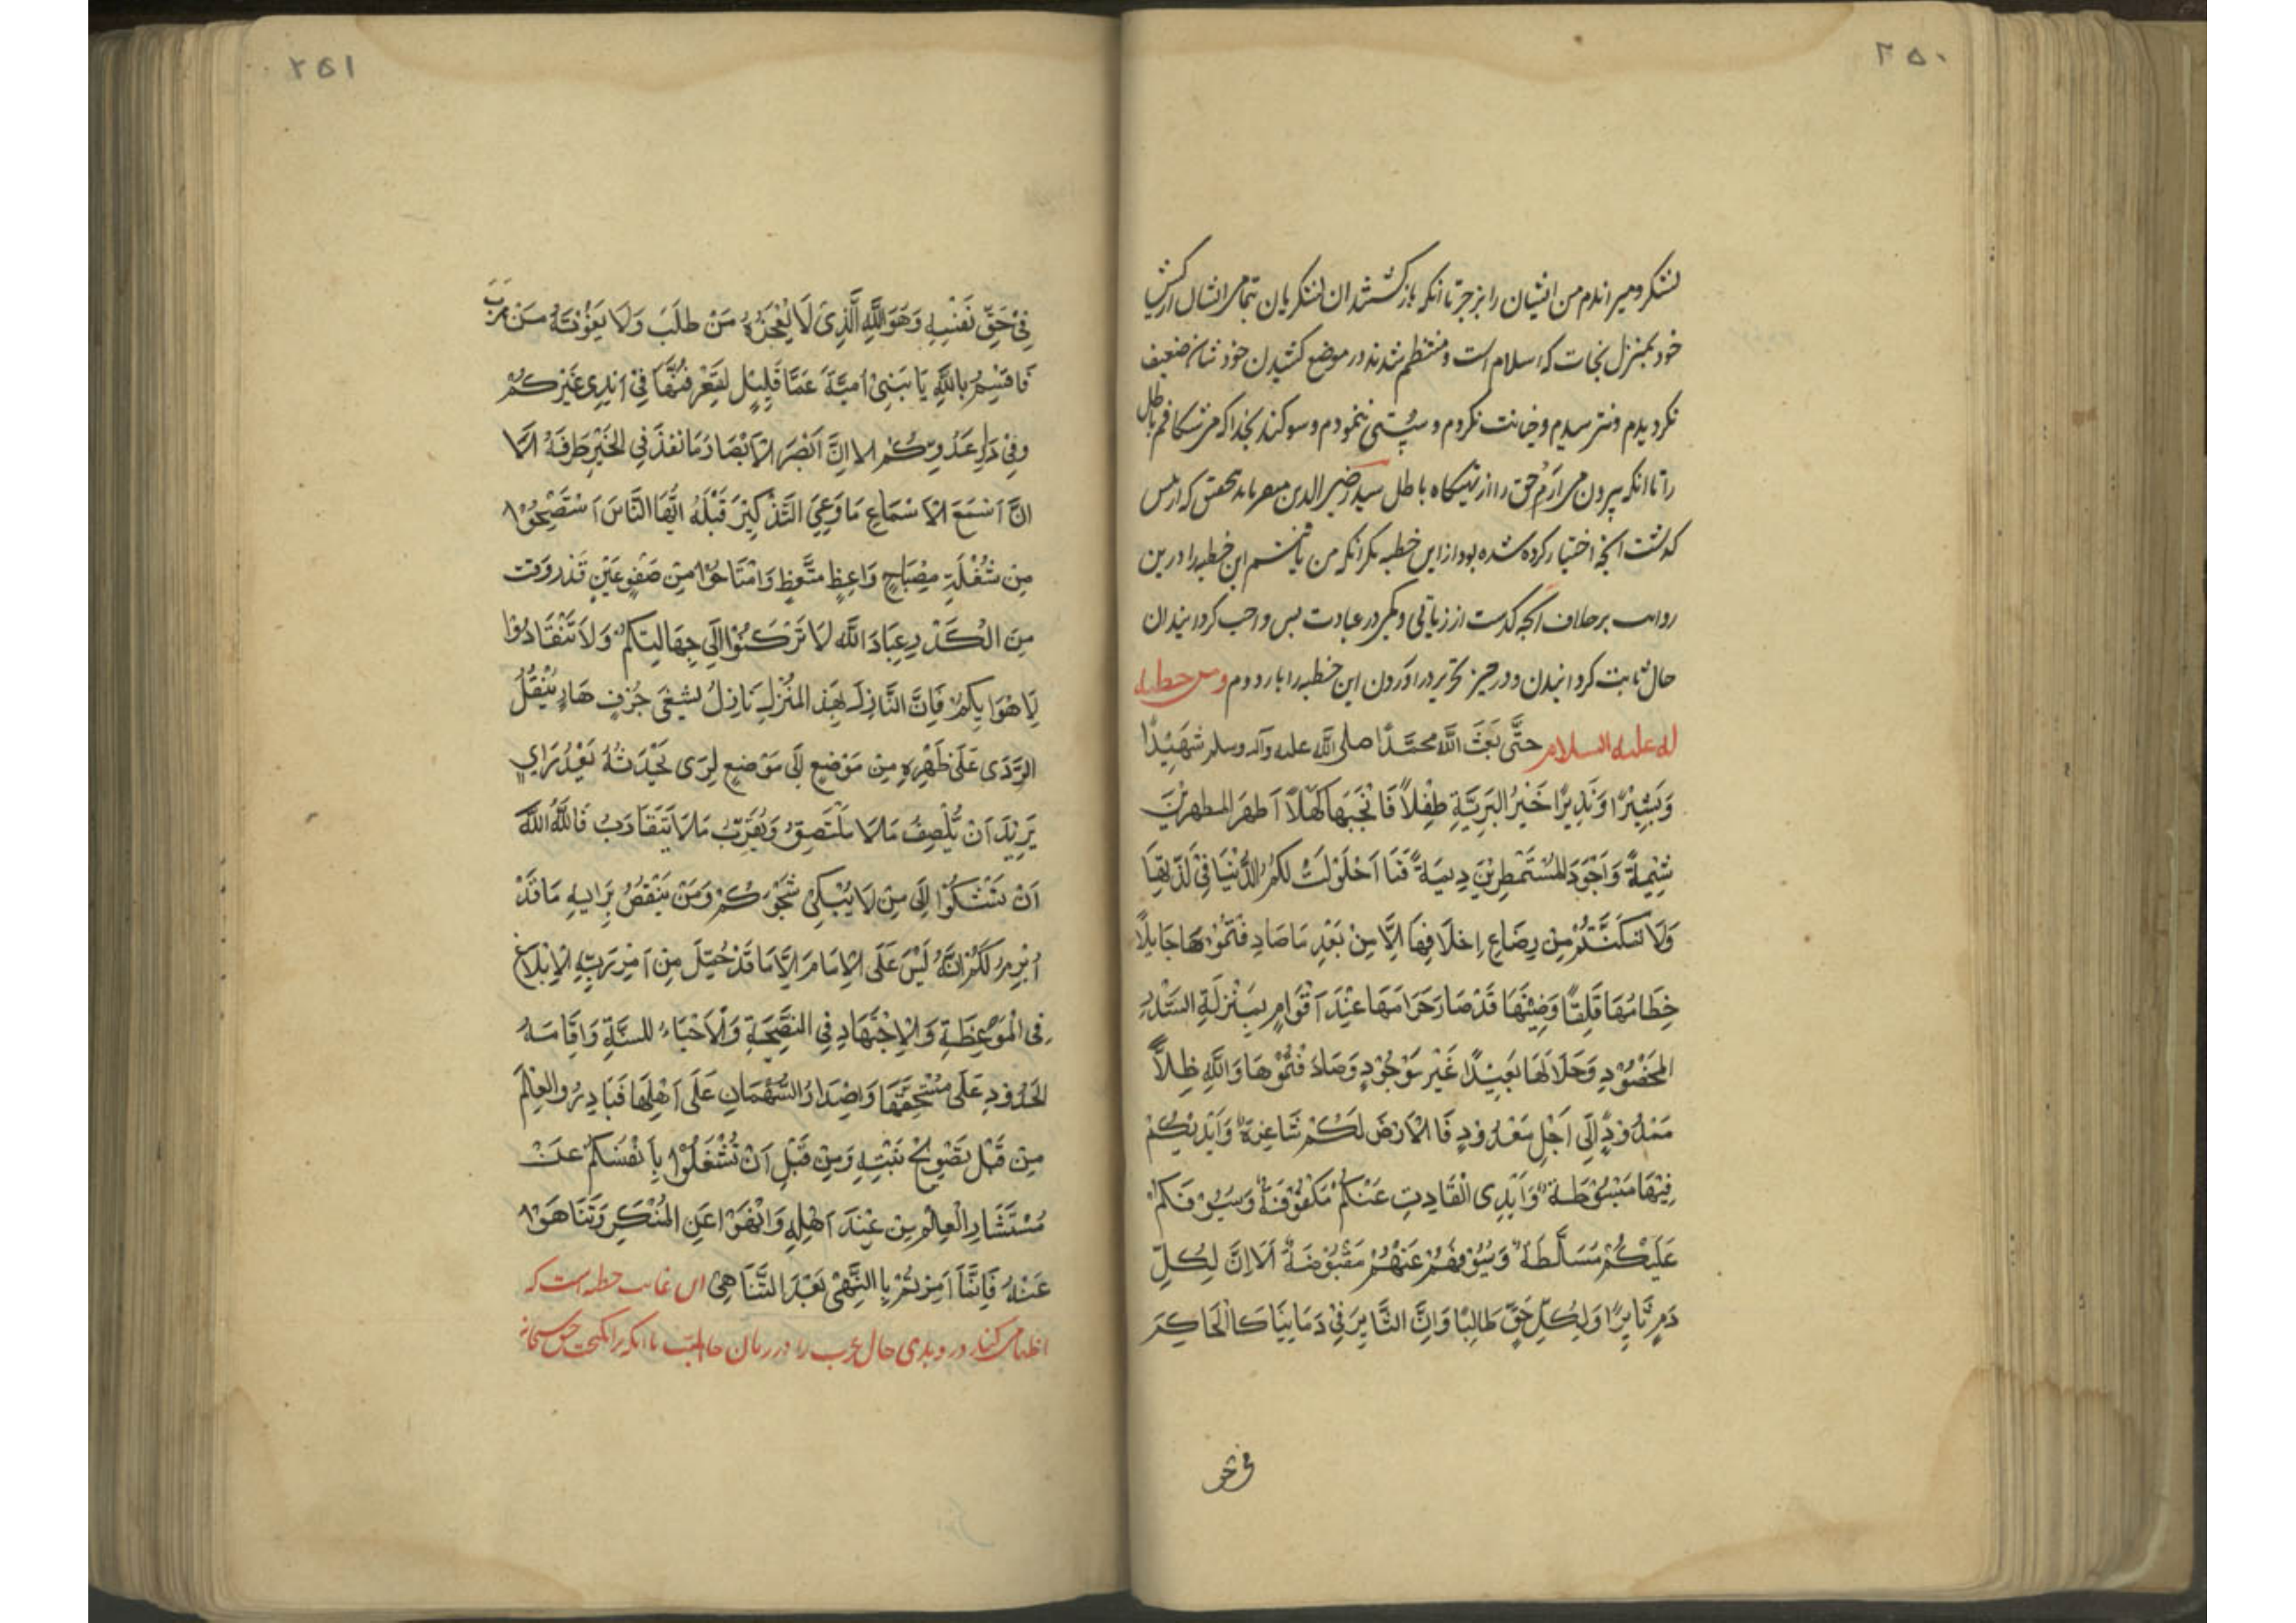 ۲۵۰
لشکر و میراندم من ایشان را بزجر تا آنکه بازکشتند ان لشکریان بتمامی انشال ارکش
خود بمنزل نجات که اسلام است و منتظم شدند در موضع کشیدن خود نشان ضعیف
نکردیدم و نترسیدم و خیانت نکردم و سستی ننمودم و سوکند بخدا که می شکافم باطل
را تا انکه بیرون می ارم حق را از تهیکاه باطل سید رضی الدین میفرماید بتحقیق که از پیش
کذشت انچه اختیار کرده شده بود از این خطبه مکر انکه من یافتم این خطبه را درین
روایت برخلاف آنچه کذشت از زیاتی و کمی در عبادت پس واجب کردانیدان
حال ثابت کردانیدن و در حیز تحریر دراوردن این خطبه را بار دوم ومن خطبه
له علیه السلام حَتَّى بَعَثَ اللَّهُ مُحَمَّدًا صلی الله علیه وآله وسلم شَهِيْدًا
وَبَشِيْرًا وَنَذِيرًا خَيْرَ البَرِيَّةِ طِفْلاً فَانْجَبَهَا كَهْلاً اَطْهَرَ المطهرِيْنَ
شِيْمَةً وَاَجْوَدَ المُسْتَمْطِرِيْنَ دِيمَةً فَمَا اَحْلَوْلَتْ لَكُمْ الدُّنْيَا فِيْ لَذَّتِهَا
وَلَا تمَكَنَّتُمْ مِنْ رِضَاعِ اِخْلَافِهَا اِلَّا مِنْ بَعْدِ مَا صَادِفْتُمُوْهَا جَايِلًا
خِطَامُهَا قَلِقًا وَضِيْنُهَا قَدْ صَارَ حَرَامُهَا عِنْدَ اَقْوَامٍ بِمَنْزِلَةِ السِّدْرِ
المَخْضُوْدِ وَحَلَالُهَا بَعِيْدًا غَيْرَ مَوْجُوْدٍ وَصَادَفْتُمُوْهَا وَاللَّهِ ظِلاًّ
مَمْدُوْدًا اِلَى اَجْلٍ مَعْدُوْدٍ فَالْاَرْضُ لَكُمْ شَاغِرَةٌ وَاَيْدِيْكُمْ
فِيْهَا مَبْسُوْطَةٌ وَاَيْدِى الْقَادِتِ عَنْكُمْ مَكْفُوْفَةٌ وَسُيُوْفُكُمْ
عَلَيْكُمْ مُسَلَّطَةٌ وَسُيُوْفُهُمْ عَنْهُمْ مَقْبُوْضَةٌ اَلَا اِنَّ لِكُلِّ
دَمٍ ثَايِرًا وَلِكُلِّ حَقٍّ طَالِبًا وَاِنَّ الثَّايِرَ فِيْ دِمَايِنَا كَالْحَاكِمِ
فی حق
۲۵۱
فِيْ حَقِّ نَفْسِهِ وَهُوَ اللَّهِ الَّذِيْ لَا يُعْجِزُهُ مَنْ طَلَبَ وَلَا يَفُوْتُهُ مَنْ هَرَبَ
فَاُقْسِمُ بِاللَّهِ يَا بَنِيْ اُمَيَّةَ عَمَّا قَلِيْلٍ لَتَعْرِفُنَّهَا فِيْ اَيْدِى غَيْرِكُمْ
وَفِيْ دَارِ عَدُوِّكُمْ الا اِنَّ اَبْصَرَ الْاَبْصَارِ مَا نَفَذَ فِي الخَيْرِ طَرَفُهُ اَلَا
اِنَّ اَسْمَعَ الْاَسْمَاعِ مَا وَعَىَ التَّذْكِيْرَ قَبْلَهُ اَيُّهَا النَّاسُ اَسْتَصْبِحُوْا
مِنْ شُعْلَةِ مِصْبَاحٍ وَاعِظٍ مُتَّعِظٍ وَامْتَاحُوْا مِنْ صَفْوِ عَيْنٍ قَدْ رُوِّقَتْ
مِنَ الْكَدْرِ عِبَادَ اللَّهِ لَا تَرْكَنُوْا اِلَى جِهَالَتِكُمْ وَلَا تَنْقَادُوْا
لِاَهْوَايِكُمْ فَاِنَّ النَّازِلَ بِهَذِ المَنْزِلِ نَازِلٌ بِشَفَى جُرُفٍ هَارٍ يَنْقُلُ
الرَّدَى عَلَى ظَهْرِهِ مِنْ مَوْضِعٍ اِلَى مَوْضِعٍ لِرَى يُحْدِثُهُ بَعْدَ رَايٍ
يُرِيْدُ اَنْ يُلْصِقُ مَالا مَلْتَصِقُ وَيُقَرِّبُ مَالا يَتَقَارَبُ فَاللَّهُ اللَّهَ
اَنْ تَشْكُوْا اِلَى مِنْ لَا يُبْكِىْ شَجْوَكُمْ وَمَنْ يَنْقُضُ بِرَايِهِ مَا قَدْ
اُبْرِمَ لَكُمْ اِنَّهُ لَيْسَ عَلَى الْاِمَامِ اِلَّا مَا قَدْ حُمِّلَ مِنْ اَمْرِ رَبِّهِ الْاِبْلَاغُ
فِى الْمَوْعِظَةِ وَالْاِجْتِهَادِ فِى النَّصِيْحَةِ وَالْاَحْيَاءُ لِلسُّنَّةِ وَاِقَامَةُ
الحُدُوْدِ عَلَى مُسْتَحِقِّيْهَا وَاِصْدَارُ السُّهْمَانِ عَلَى اَهْلِهَا فَبَادِرُوا العِلْمَ
مِنْ قَبْلِ تَصْوِيْحِ نَبْتِهِ وَمِنْ قَبْلِ اَنْ تُشْغَلُوْا بِاَنْفُسِكُمْ عَنْ
مُسْتَشَارِ الْعِلْمِ مِنْ عِنْدَ اَهْلِهِ وَانْهَوْا عَنِ المُنْكَرِ وَتَنَاهَوْا
عَنْهُ فَاِنَّمَا اُمِرْتُمْ بِا النَّهْىِ بَعْدَ التَّنَاهِىْ این خطبه است که
اظهار می کند در وی بدی حال عرب را در زمان جاهلیت تا انکه برانکیخت حق سبحانه